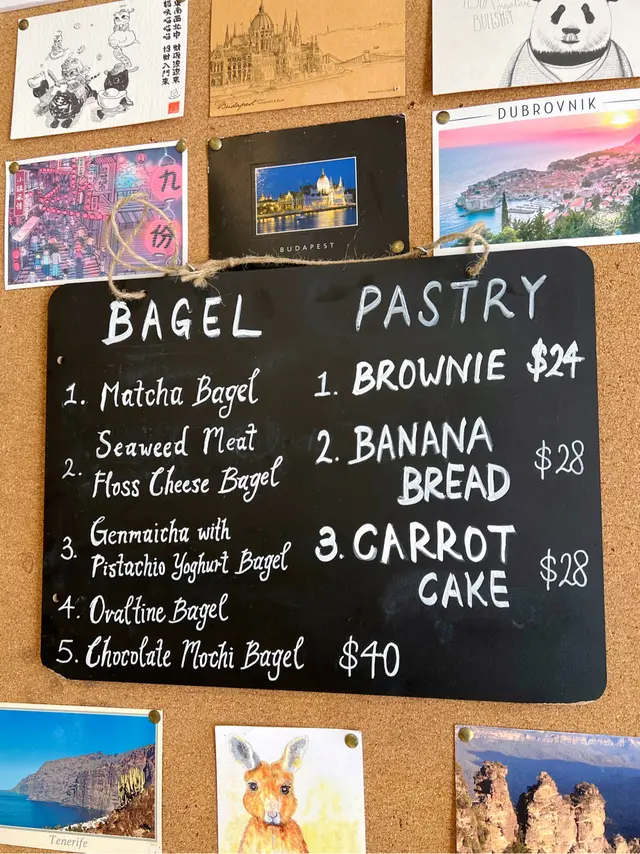 東南西北中
貓咪喵喵喵
財源滾滾來
招財入門來
Budapest
BULLSHIT
DUBROVNIK
九
份
BUDAPEST
BAGEL
1. Matcha Bagel
2. Seaweed Meat
Floss Cheese Bagel
3. Genmaicha with
Pistachio Yoghurt Bagel
4. Ovaltine Bagel
5. Chocolate Mochi Bagel $40
PASTRY
1. BROWNIE $24
2. BANANA
BREAD $28
3. CARROT
CAKE $28
Tenerife